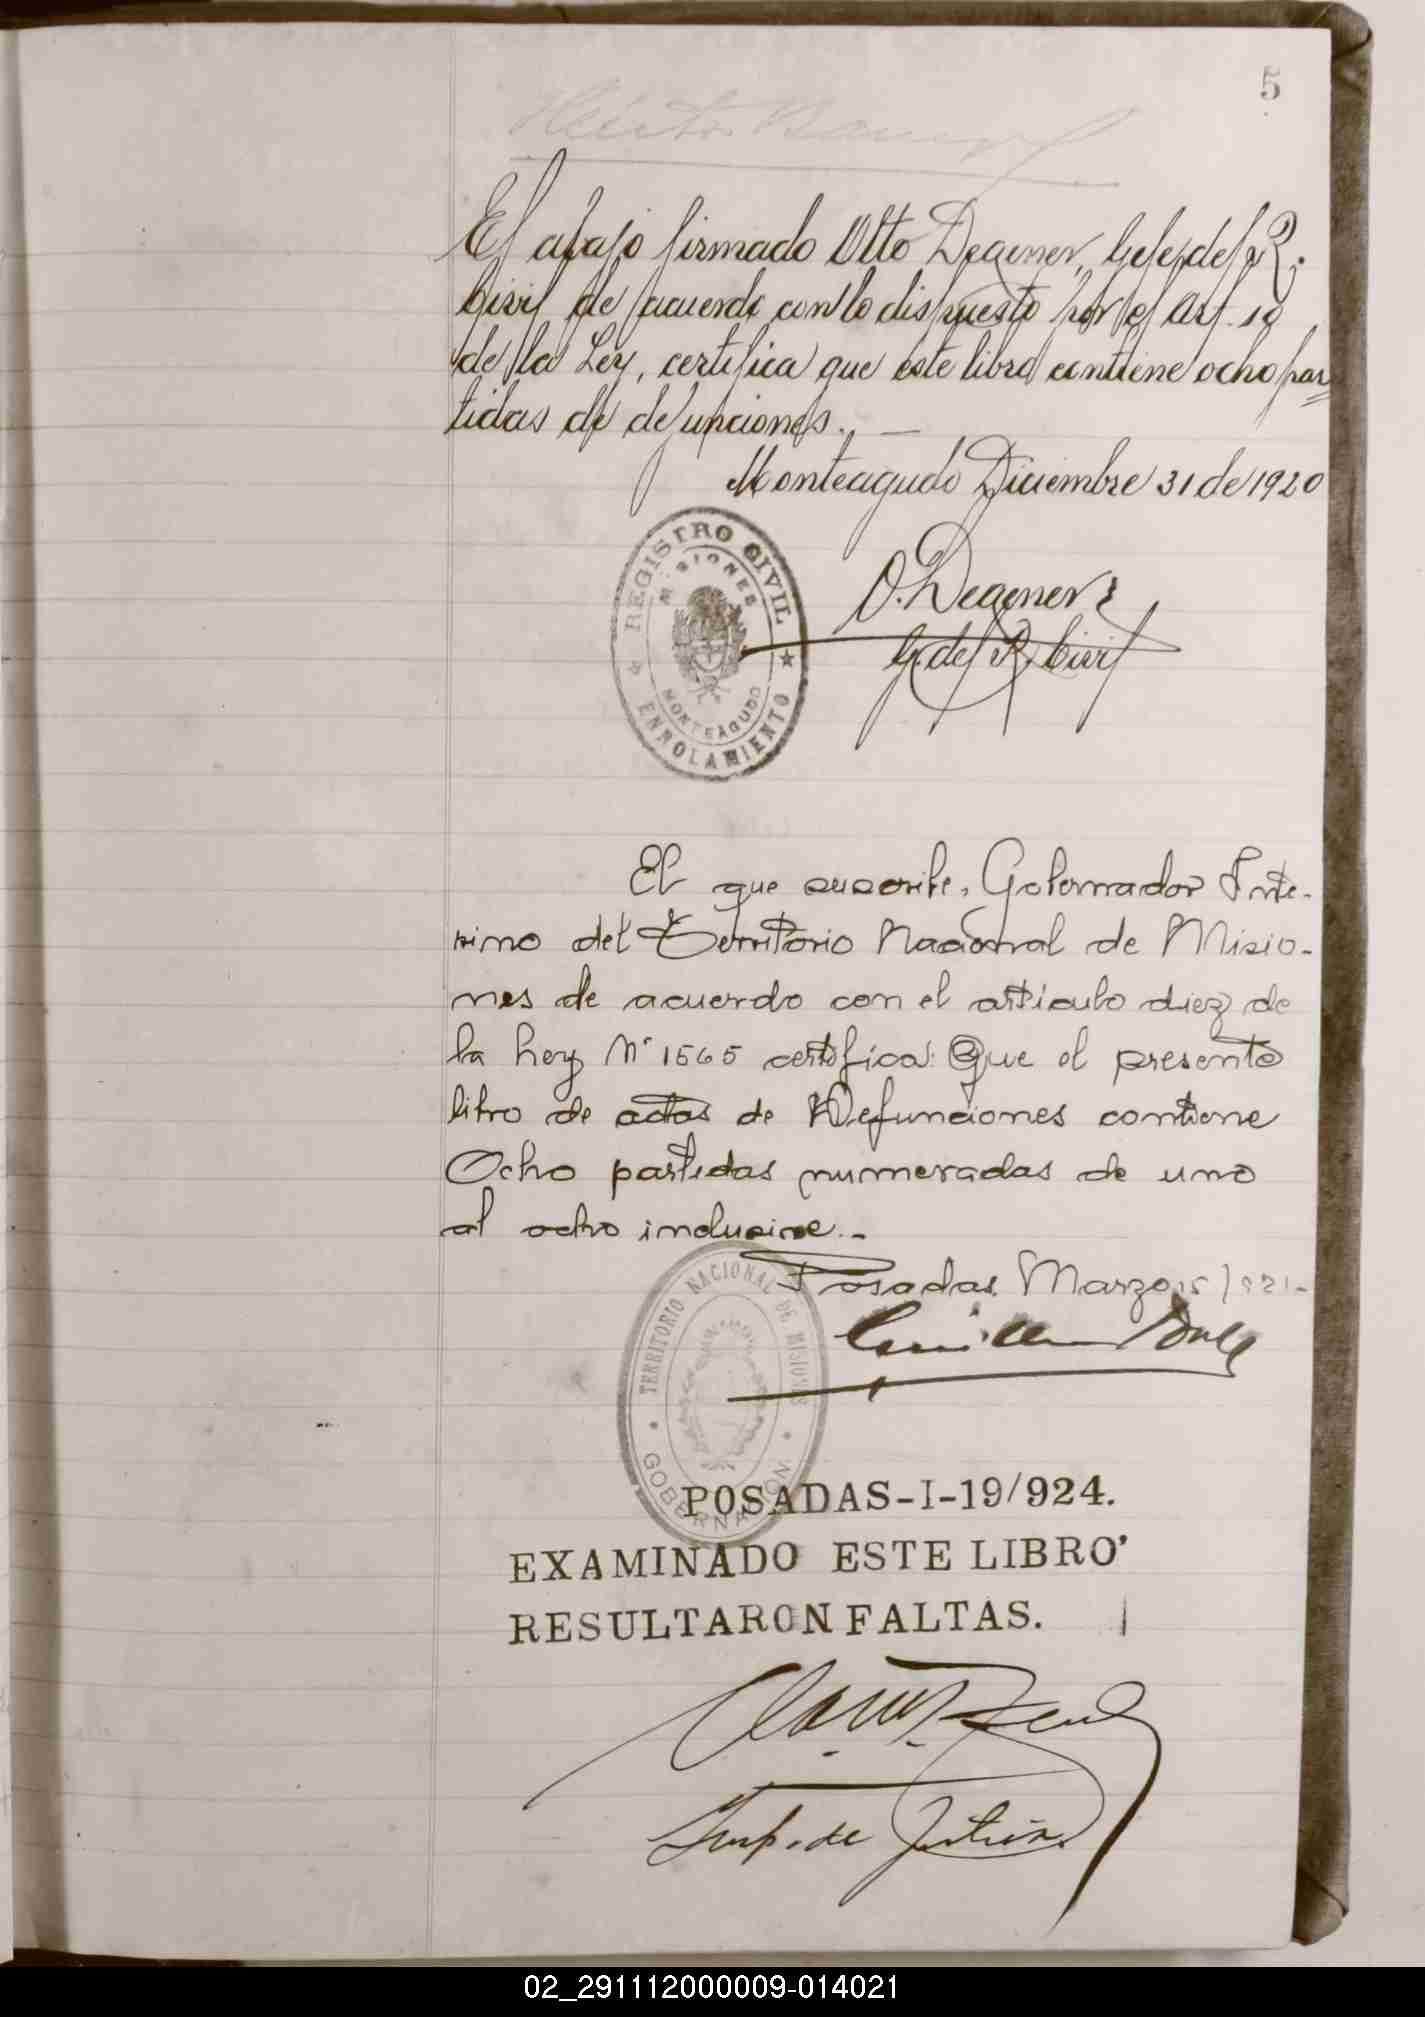 5
El abajo firmado Otto Degener, Gefe del R.
Civil de acuerdo con lo dispuesto por el Art. 10
de la Ley, certifica que este libro contiene ocho par=
tidas de defunciones. —
Monteagudo Diciembre 31 de 1920
REGISTRO CIVIL
MISIONES
MONTEAGUDO
ENROLAMIENTO
O. Degener
G. del R. Civil
El que suscribe, Gobernador Inte-
rino del Territorio Nacional de Misio-
nes de acuerdo con el artículo diez de
la Ley Nº 1565 certifica: Que el presente
libro de actas de Defunciones contiene
Ocho partidas numeradas de uno
al ocho inclusive.-
Posadas Marzo 15/921-
TERRITORIO NACIONAL DE MISIONES
GOBERNACIÓN
POSADAS-I-19/924.
EXAMINADO ESTE LIBRO
RESULTARON FALTAS.
Insp. de Justicia
02_291112000009-014021